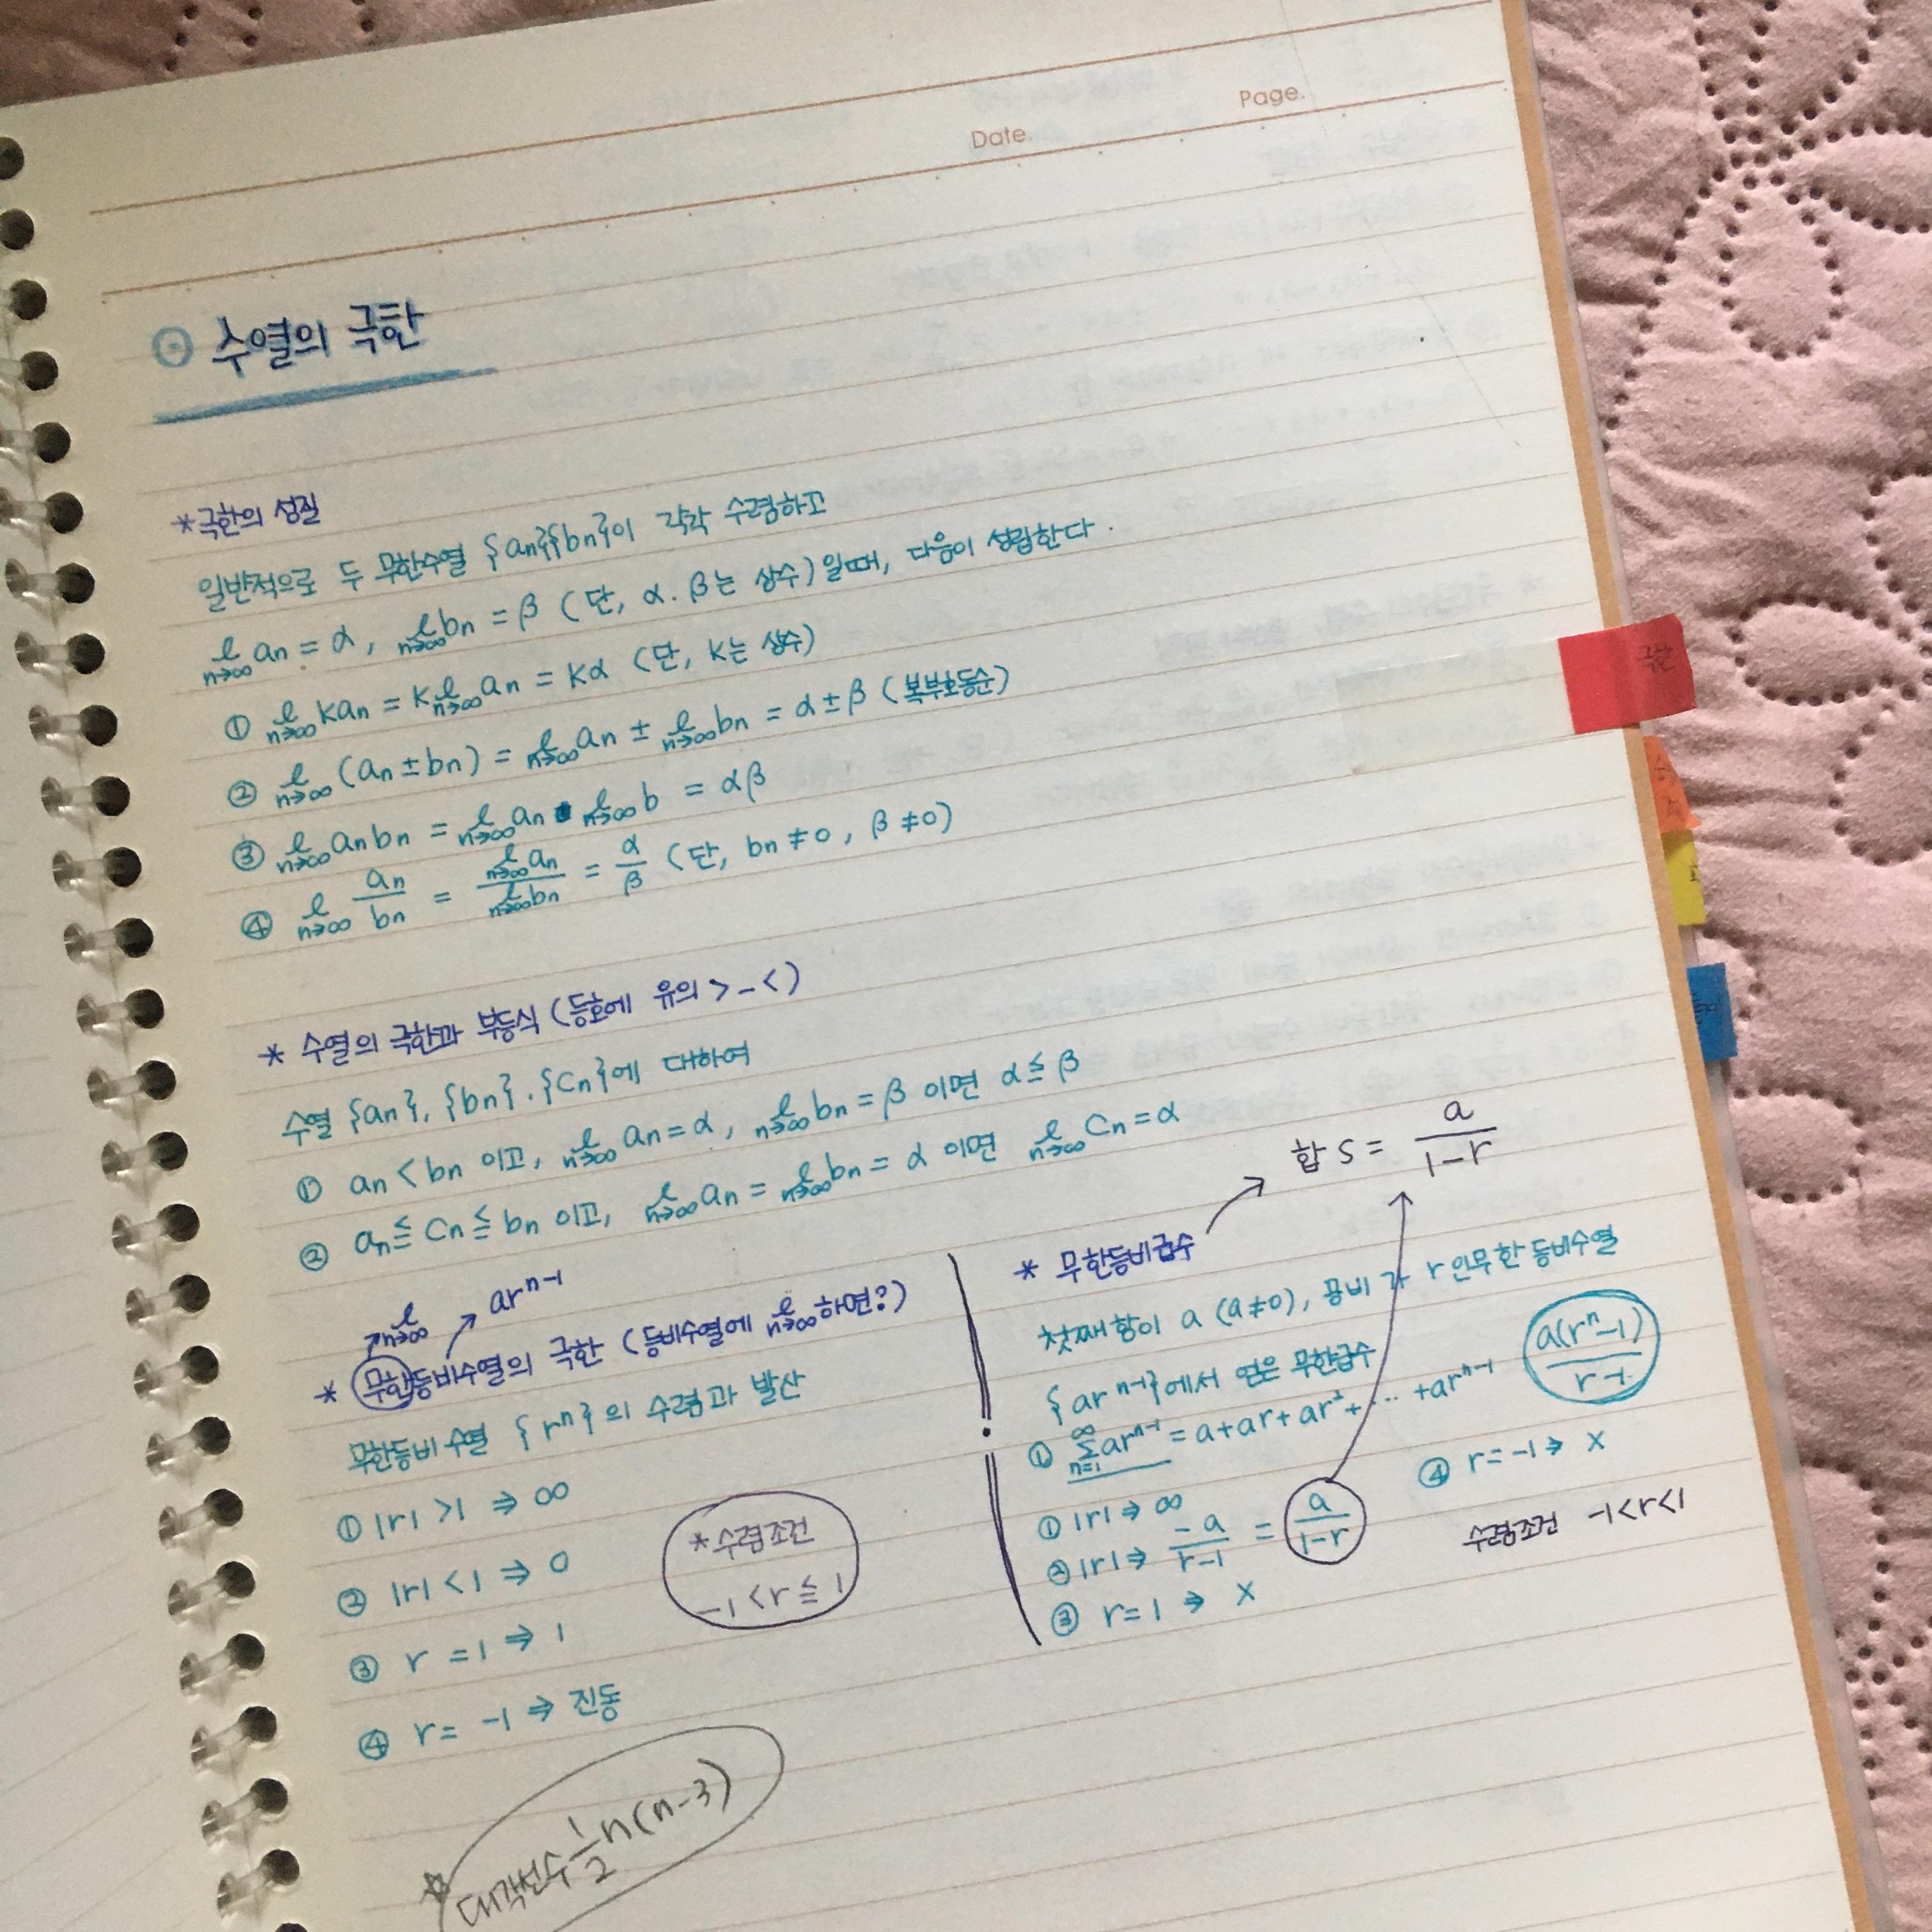 Page.
Date.
⊙ 수열의 극한
*극한의 성질
일반적으로 두 무한수열 {an}{bn}이 각각 수렴하고
ℓ n→∞ an = α, ℓ n→∞ bn = β (단, α. β는 상수) 일때, 다음이 성립한다.
① ℓ n→∞ kan = k ℓ n→∞ an = kα (단, k는 상수)
② ℓ n→∞ (an ± bn) = ℓ n→∞ an ± ℓ n→∞ bn = α ± β (복부호동순)
③ ℓ n→∞ an bn = ℓ n→∞ an • ℓ n→∞ b = αβ
④ ℓ n→∞ an/bn = ℓ n→∞ an / ℓ n→∞ bn = α/β (단, bn ≠ 0, β ≠ 0)
* 수열의 극한과 부등식 (등호에 유의 >_<)
수열 {an}, {bn}. {Cn}에 대하여
① an < bn 이고, ℓ n→∞ an = α, ℓ n→∞ bn = β 이면 α ≦ β
② an ≦ Cn ≦ bn 이고, ℓ n→∞ an = ℓ n→∞ bn = α 이면 ℓ n→∞ Cn = α
ℓ n→∞ ar^n-1
* 무한등비수열의 극한 (등비수열에 ℓ n→∞ 하면?)
무한등비수열 {r^n}의 수렴과 발산
① |r| > 1 ⇒ ∞
② |r| < 1 ⇒ 0
③ r = 1 ⇒ 1
④ r = -1 ⇒ 진동
*수렴조건
-1 < r ≦ 1
* 무한등비급수
합 S = a/1-r
첫째항이 a (a≠0), 공비가 r인 무한등비수열
{ar^n-1}에서 얻은 무한급수
① ∞ Σ n=1 ar^n-1 = a+ar+ar²+ ··· +ar^n-1
a(r^n-1)/r-1
① |r| ⇒ ∞
② |r| ⇒ -a/r-1 = a/1-r
③ r = 1 ⇒ x
④ r = -1 ⇒ x
수렴조건 -1<r<1
☆ 대각선수 1/2 n(n-3)
극한